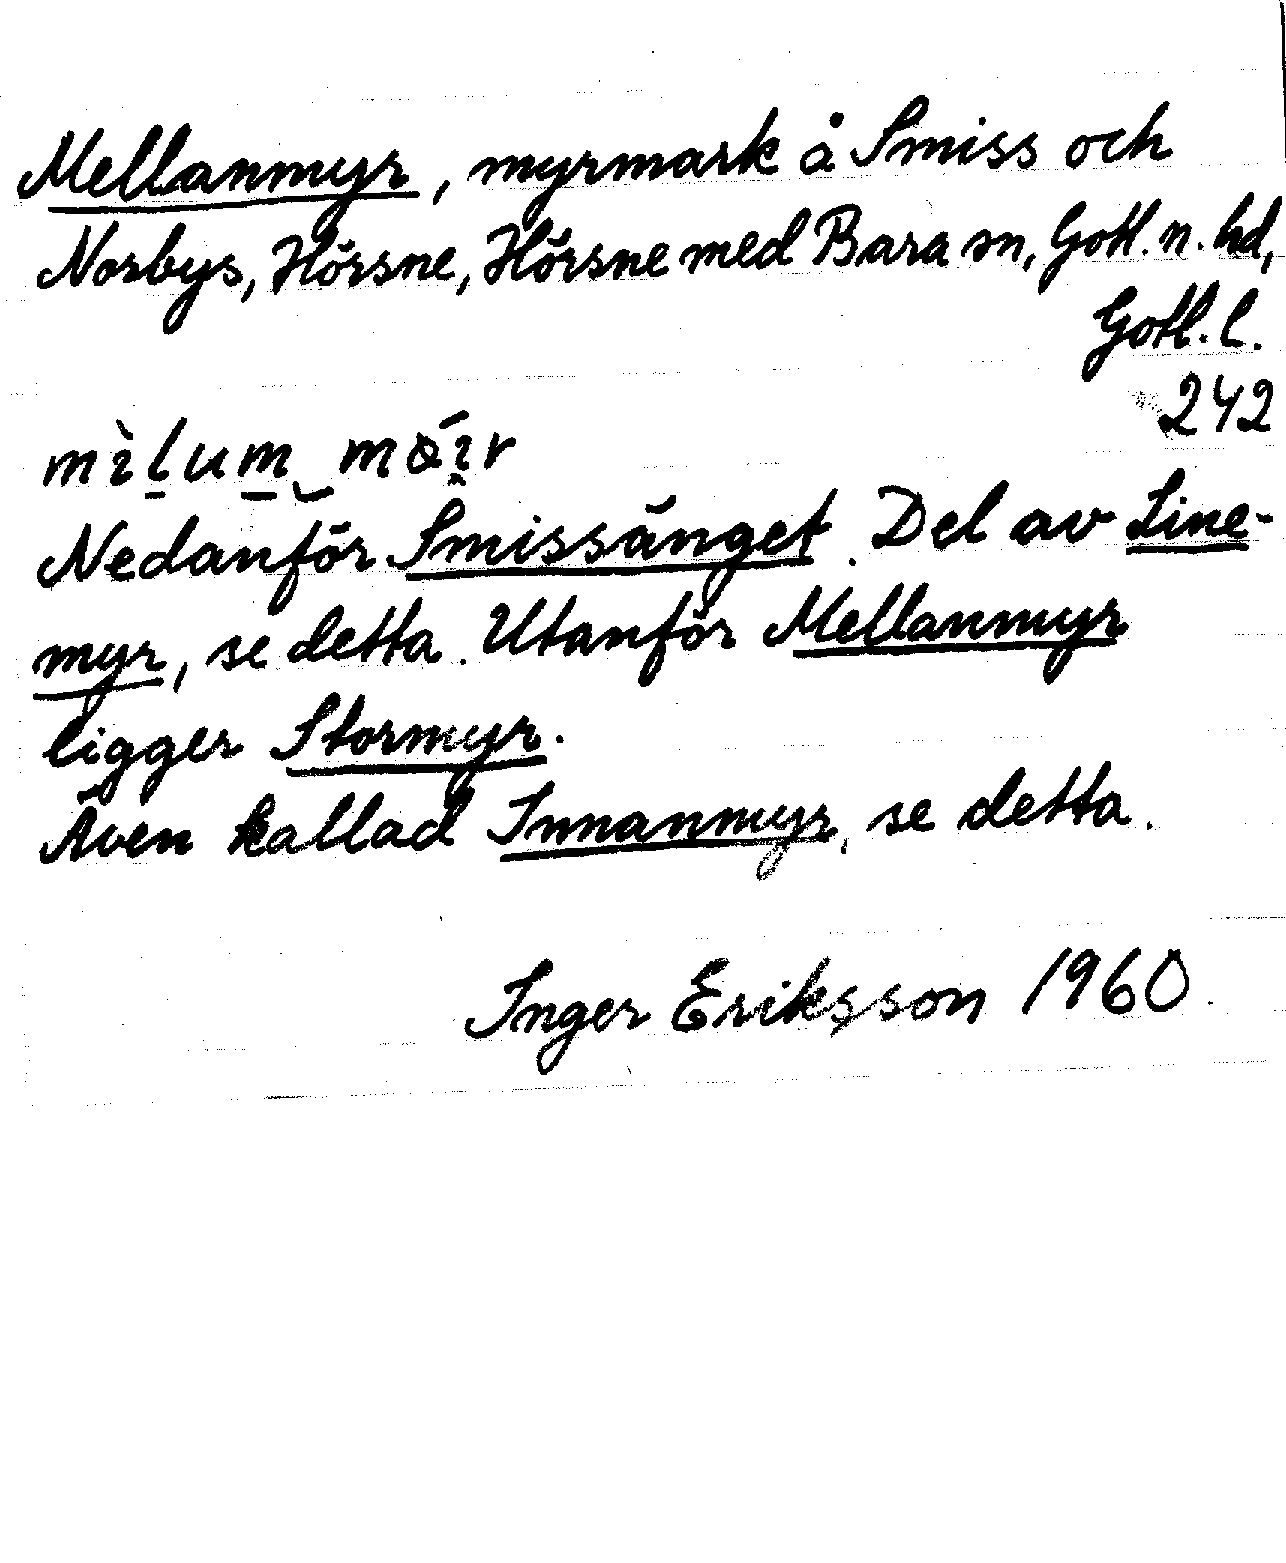 Mellanmyr, myrmark å Smiss och
Norbys, Hörsne, Hörsne med Bara sn, Gotl. n. hd,
Gotl. l.
242
Nedanför Smissänget. Del av Line-
myr, se detta. Utanför Mellanmyr
ligger Stormyr.
Även kallad Innanmyr, se detta.
Inger Eriksson 1960.